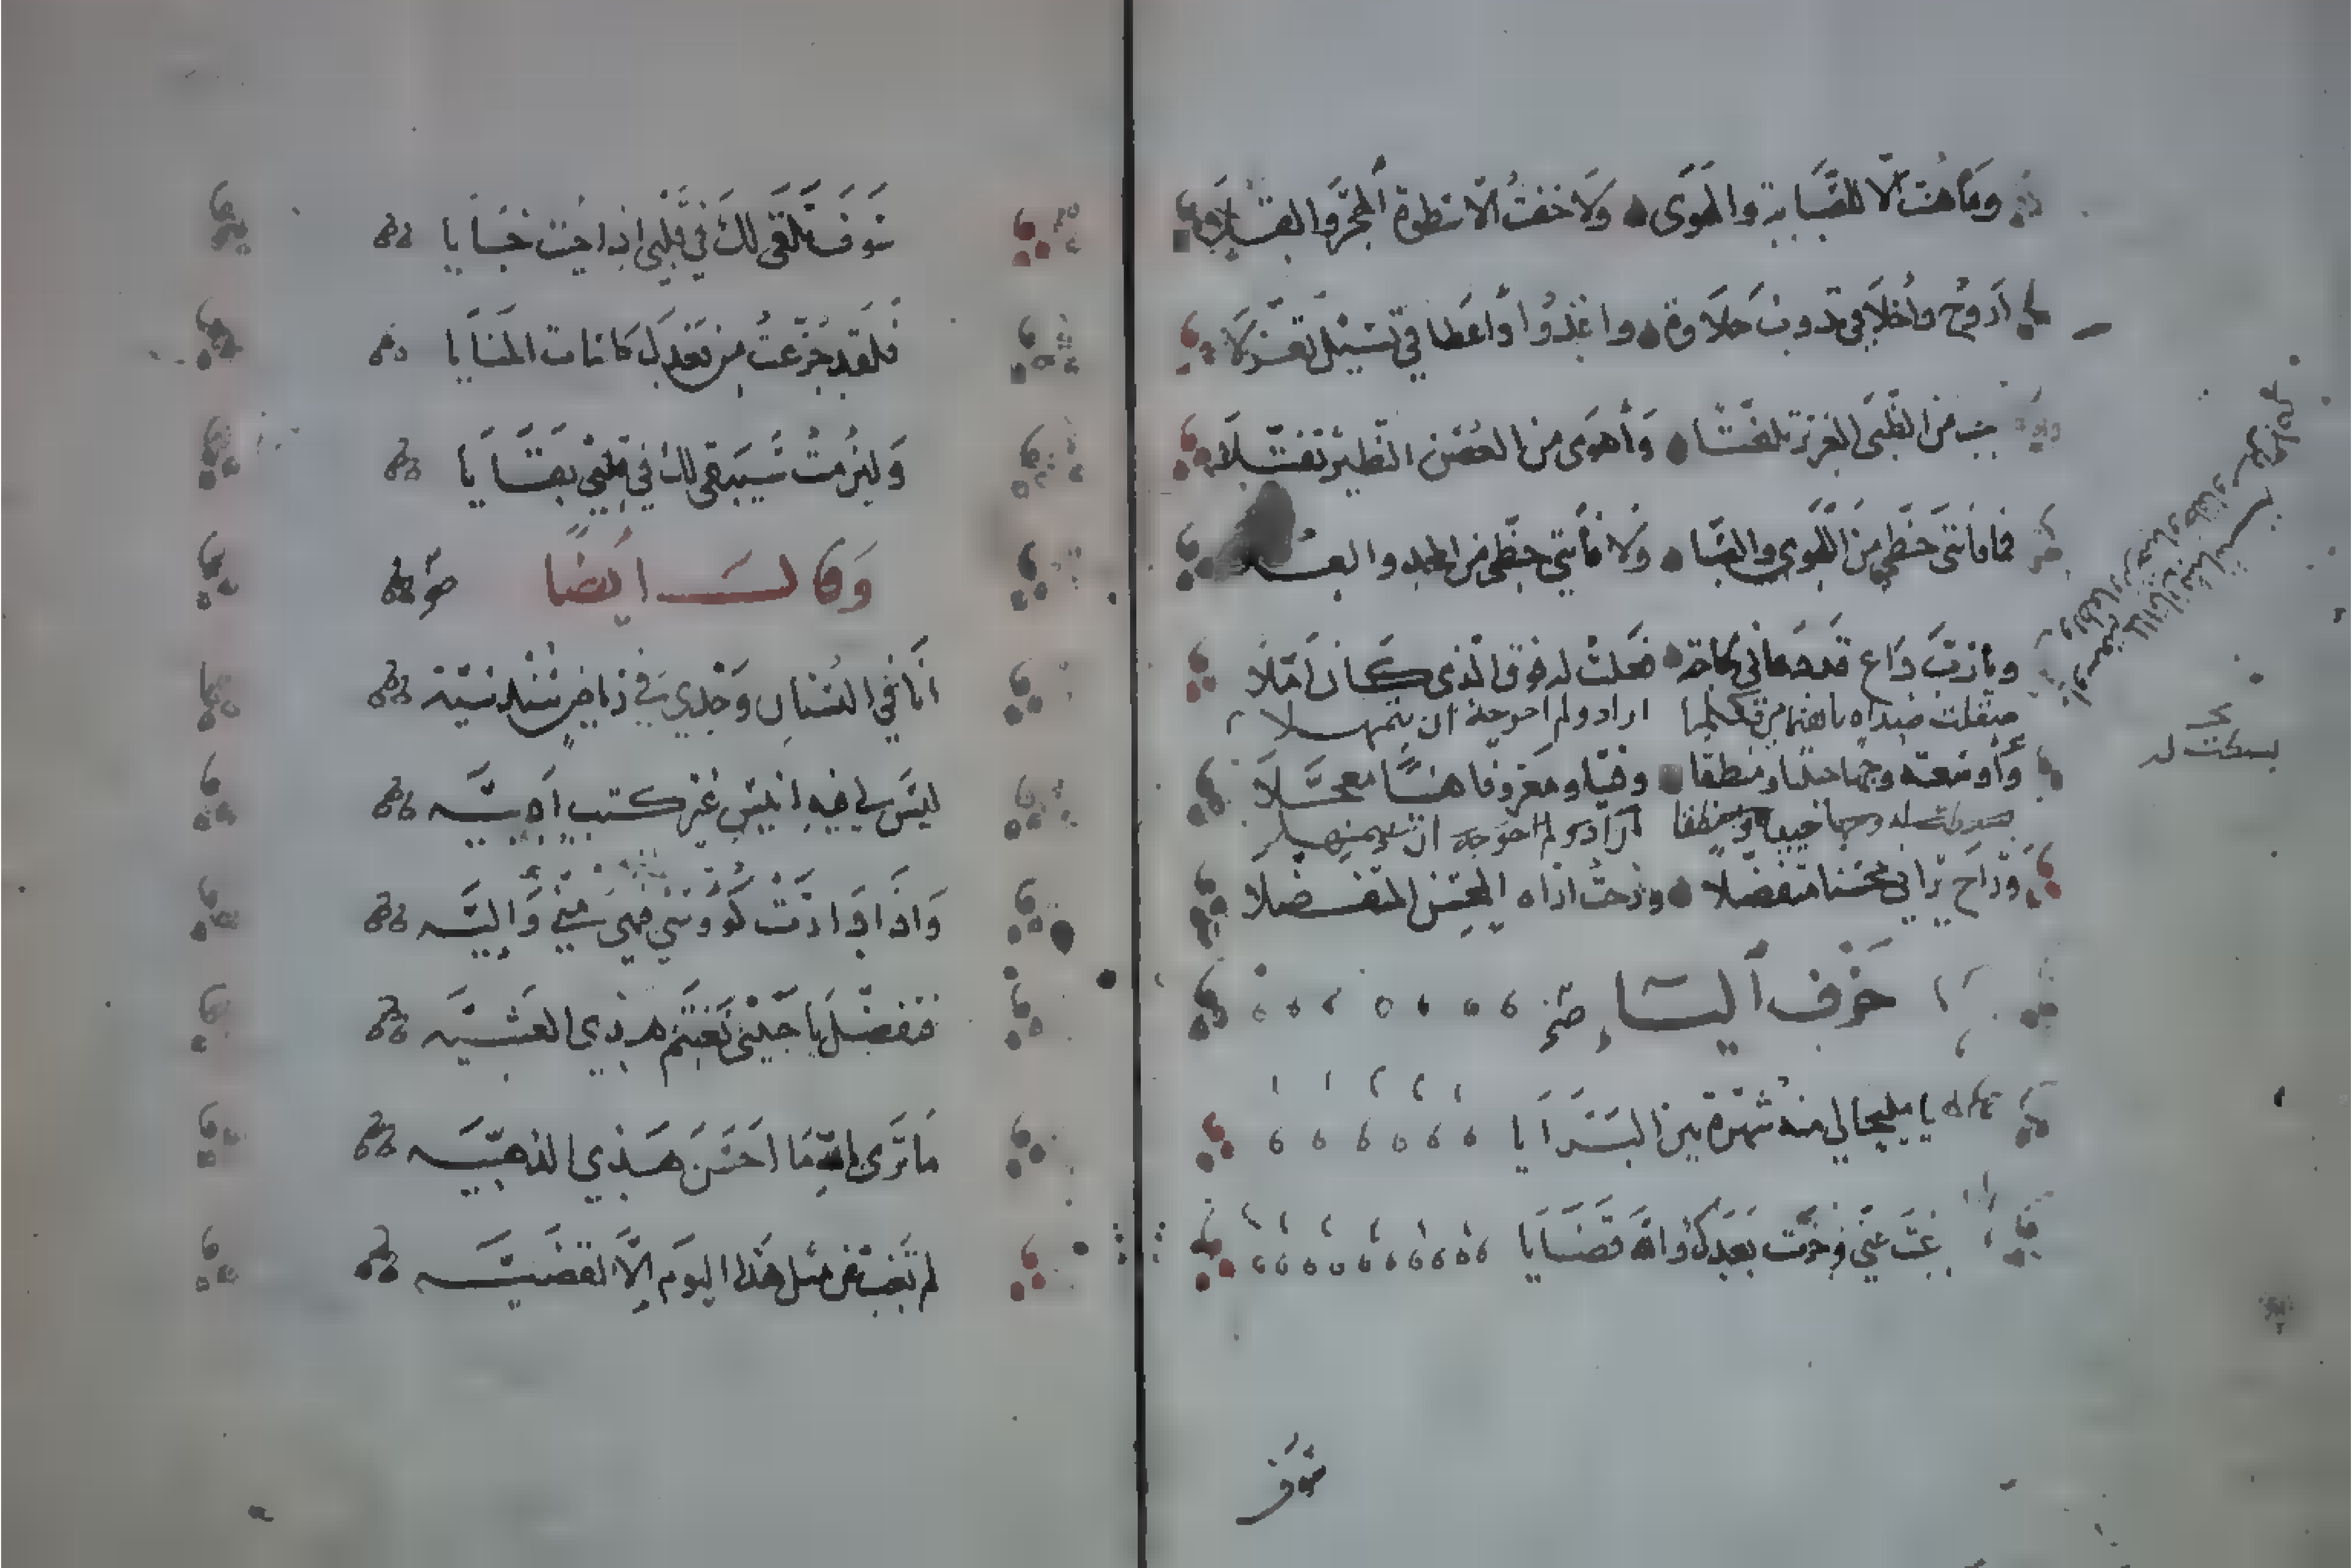 وما هنت الا للصبابة والهوى ولا خفت الا سطوة الهجر والقلا
اروح واخلاقي تذوب حلاوة واغدوا واعطافي تسيل تغزلا
احب من الظبي الغرير تلفتا واهوى من الغصن النظير تفتلا
فما فاتني حظي من اللهو والصبا ولا فاتني حظي من المجد والعلا
ويارب داع قد دعاني لحاجة فعلت له فوق الذي كان املا
سبقت صداه باهتمامي بكلما اراد ولم احوجه ان يتمهلا
واوسعته وجها حييا ومنطقا وفيا ومعروفا هنيا معجلا
بسطت له وجها حييا ومنطقا اراد ولم احوجه ان يتمهلا
وراح يراني محسنا متفضلا ورحت اراه المحسن المتفضلا
حرف اليآء
يا مليحا لي منه شهرة بين البرايا
غبت عني وجرت بعدك والله قضايا
سوف
بسطت له
سوف تلقى لك في قلبي اذا جيت خبايا
فلقد جرعت من بعدك كاسات المنايا
ولئن مت سيبقى لك في قلبي بقايا
وقال ايضا
انا في البستان وحدي في رياض سندسيه
ليس لي فيه انيس غير كتب ادبيه
واذا دارت كووسي فهي مني واليه
فتفضل يا حبيبي نغتنم هذي العشيه
ما ترى بالله ما احسن هذي الذهبيه
لم تغب عن مثل هذا اليوم الا لقضيه